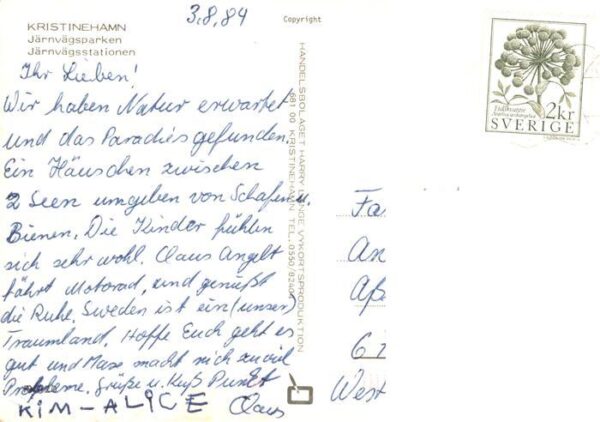 KRISTINEHAMN
Järnvägsparken
Järnvägsstationen
3.8.84
Copyright
Ihr Lieben!
Wir haben Natur erwartet
und das Paradies gefunden.
Ein Häuschen zwischen
2 Seen umgeben von Schafen u.
Bienen. Die Kinder fühlen
sich sehr wohl. Claus angelt
fährt Motorad, und genüßt
die Ruhe. Sweden ist ein (unser)
Traumland. Hoffe Euch geht es
gut und Maxe macht sich zuviel
Probleme. Grüße u. Kuß
KIM-ALICE Claus
HANDELSBOLAGET HARRY LANGE VYKORTSPRODUKTION
681 00 KRISTINEHAMN TEL. 0550/82400
2kr
SVERIGE
Fa
An
Aß
West